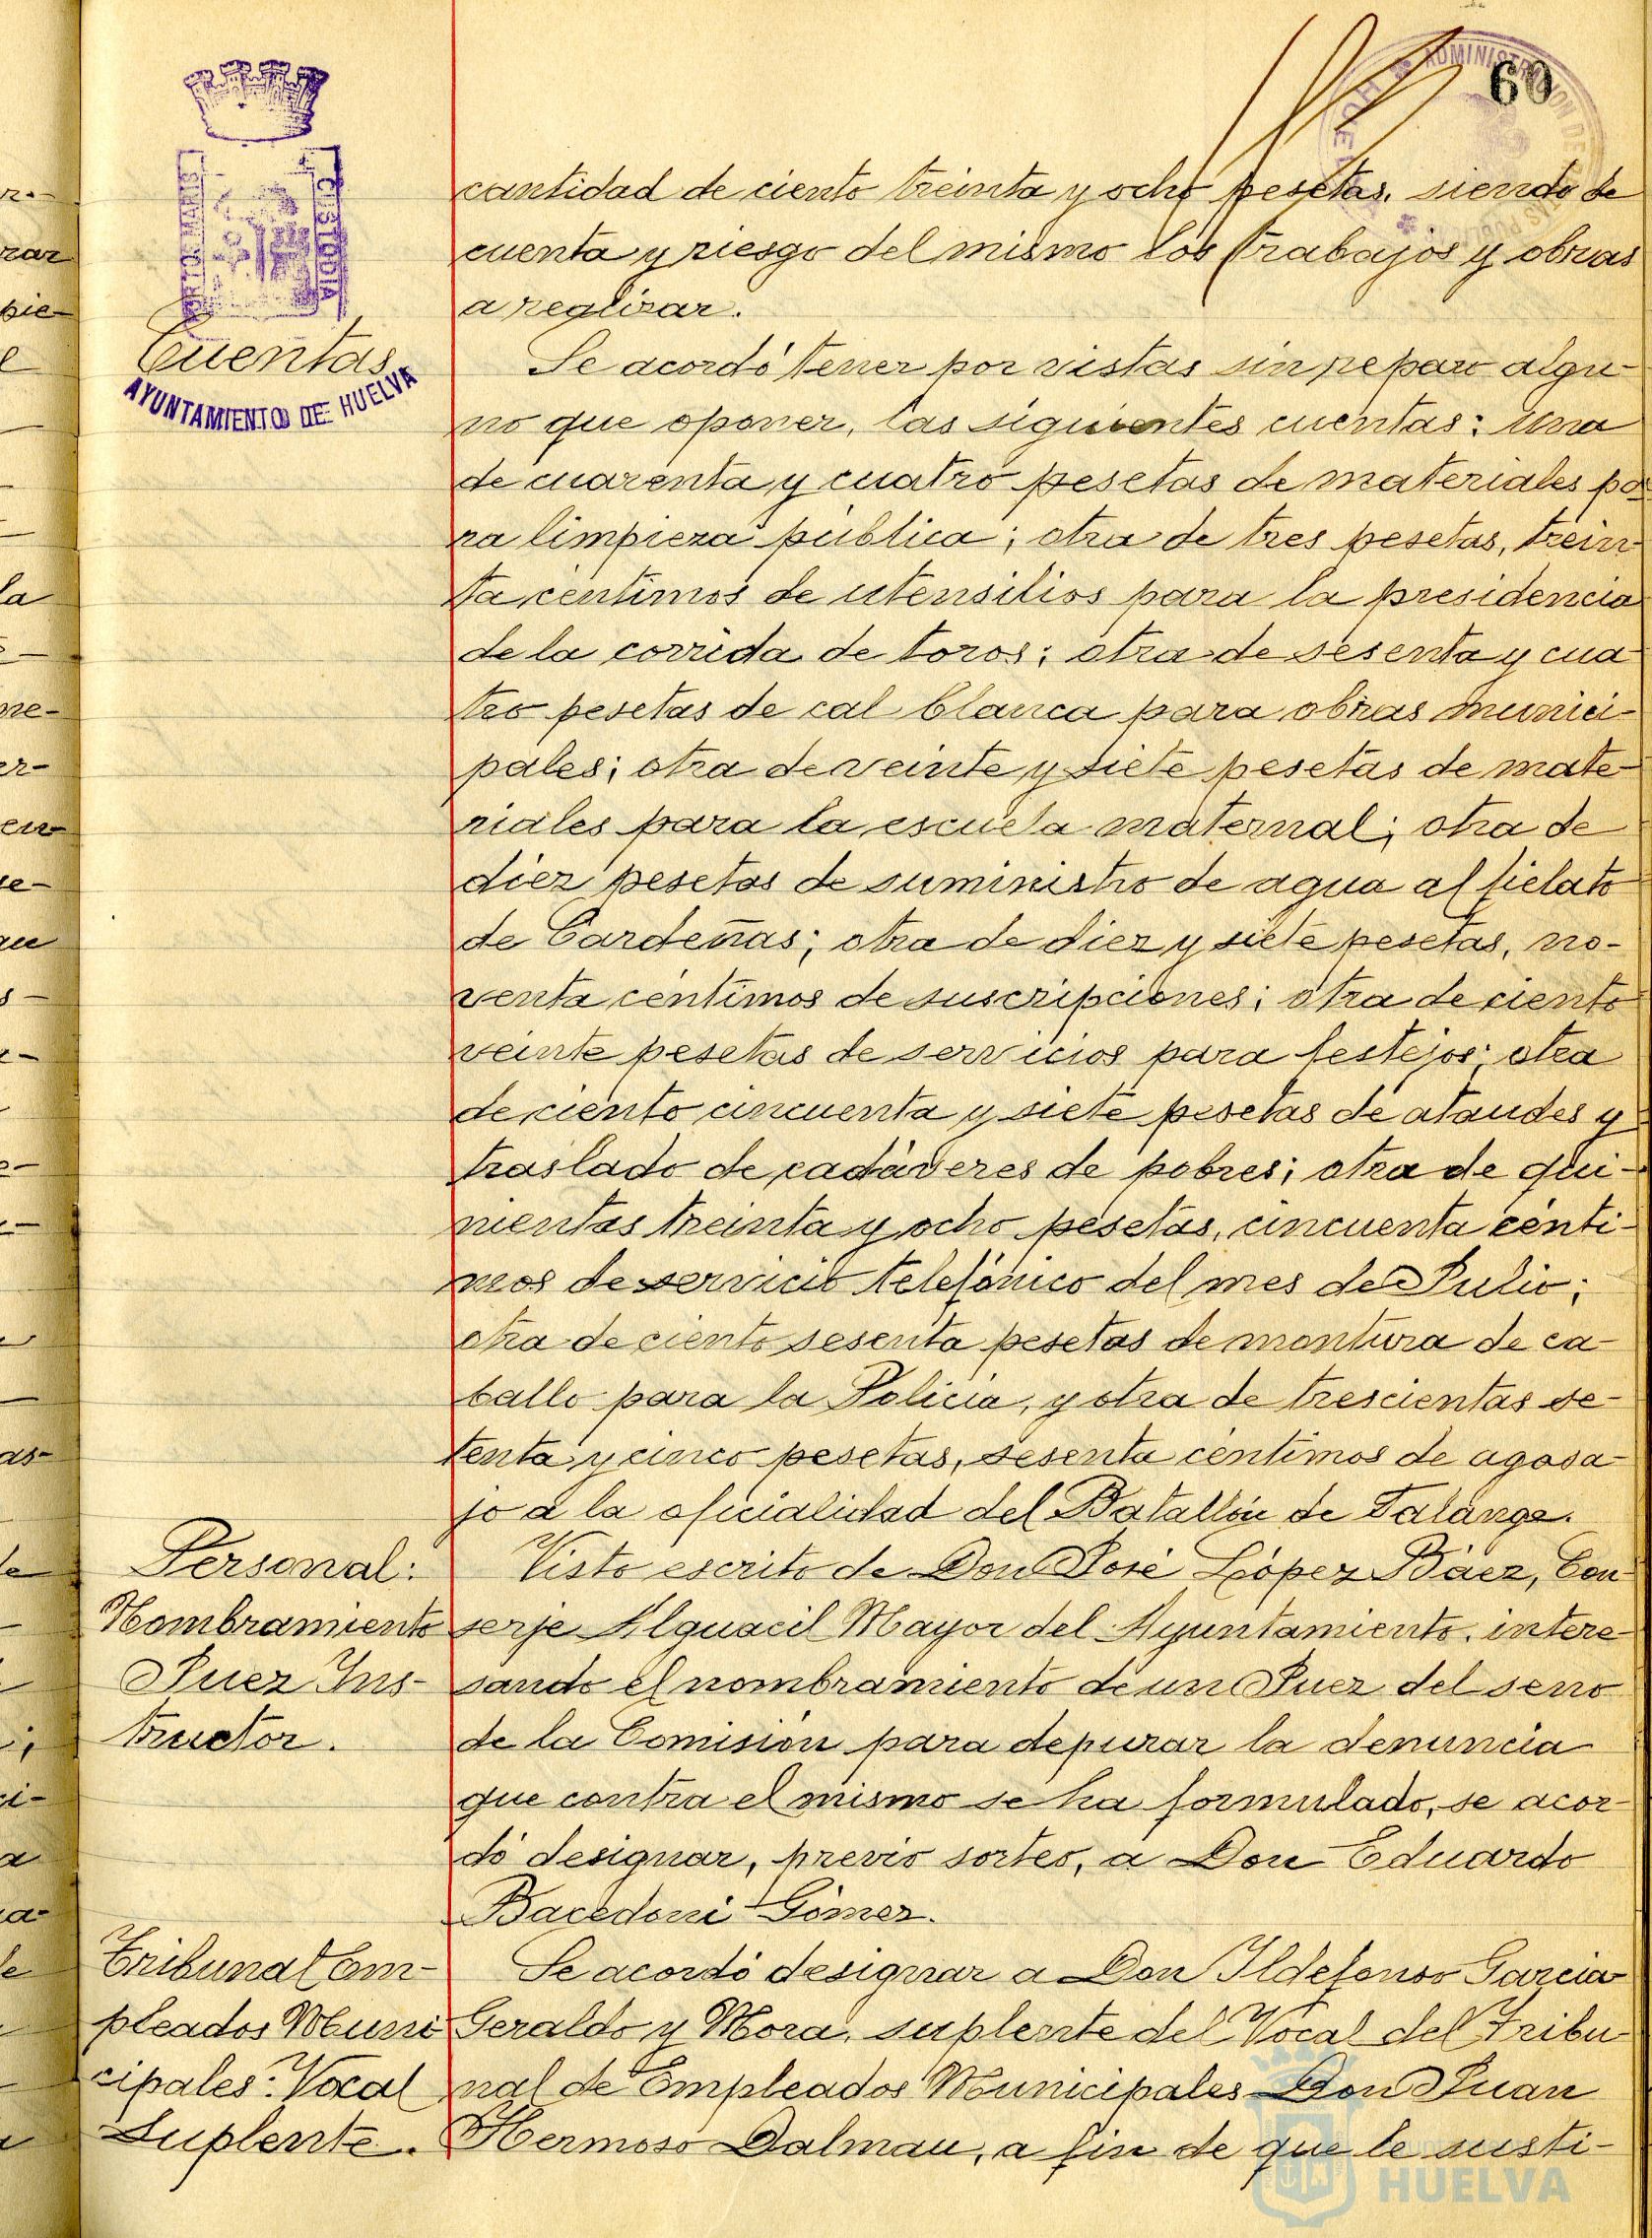 60
ADMINISTRACION DE
PORTUS MARIS
CUSTODIA
AYUNTAMIENTO DE HUELVA
cantidad de ciento treinta y ocho pesetas, siendo de
cuenta y riesgo del mismo los trabajos y obras
a realizar.
Cuentas
Se acordó tener por vistas sin reparo algu-
no que oponer, las siguientes cuentas: una
de cuarenta y cuatro pesetas de materiales pa-
ra limpieza pública; otra de tres pesetas, trein-
ta céntimos de utensilios para la presidencia
de la corrida de toros; otra de sesenta y cua
tro pesetas de cal blanca para obras munici-
pales; otra de veinte y siete pesetas de mate-
riales para la escuela maternal; otra de
diez pesetas de suministro de agua al fielato
de Cardeñas; otra de diez y siete pesetas, no-
venta céntimos de suscripciones; otra de ciento
veinte pesetas de servicios para festejos; otra
de ciento cincuenta y siete pesetas de ataudes y
traslado de cadáveres de pobres; otra de qui-
nientas treinta y ocho pesetas, cincuenta cénti-
mos de servicio telefónico del mes de Julio;
otra de ciento sesenta pesetas de montura de ca-
ballo para la Policia, y otra de trescientas se-
tenta y cinco pesetas, sesenta céntimos de agasa-
jo a la oficialidad del Batallón de Falange.
Personal:
Nombramiento
Juez Ins-
tructor.
Visto escrito de Don José López Báez, Con
serje Alguacil Mayor del Ayuntamiento, intere-
sando el nombramiento de un Juez del seno
de la Comisión para depurar la denuncia
que contra el mismo se ha formulado, se acor-
dó designar, previo sorteo, a Don Eduardo
Bacedoni Gómez.
Tribunal Em-
pleados Muni
cipales: Vocal
Suplente.
Se acordó designar a Don Ildefonso Garcia
Geraldo y Mora, suplente del Vocal del Tribu-
nal de Empleados Municipales Don Juan
Hermoso Dalmau, a fin de que le susti-
HUELVA